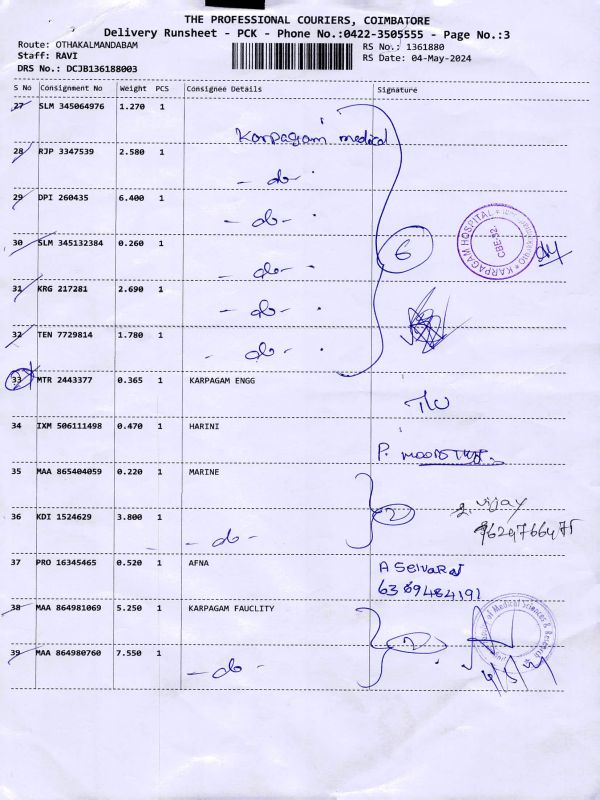 THE PROFESSIONAL COURIERS, COIMBATORE
Delivery Runsheet - PCK - Phone No.:0422-3505555 - Page No.:3
Route: OTHAKALMANDABAM
RS No.: 1361880
Staff: RAVI
RS Date: 04-May-2024
DRS No.: DCJB136188003
S No Consignment No Weight PCS Consignee Details Signature
27 SLM 345064976 1.270 1 Karpagam medical
28 RJP 3347539 2.580 1 - do -
29 DPI 260435 6.400 1 - do -
KARPAGAM HOSPITAL
CBE-32
6
30 SLM 345132384 0.260 1 - do -
31 KRG 217281 2.690 1 - do -
32 TEN 7729814 1.780 1 - do -
33 MTR 2443377 0.365 1 KARPAGAM ENGG
34 IXM 506111498 0.470 1 HARINI P.
35 MAA 865404059 0.220 1 MARINE
2 vijay
36 KDI 1524629 3.800 1 - do -
37 PRO 16345465 0.520 1 AFNA A Selvaraj
6369484191
38 MAA 864981069 5.250 1 KARPAGAM FAUCLITY
of Medical Sciences & Research
2
39 MAA 864980760 7.550 1 - do - 4/5/24